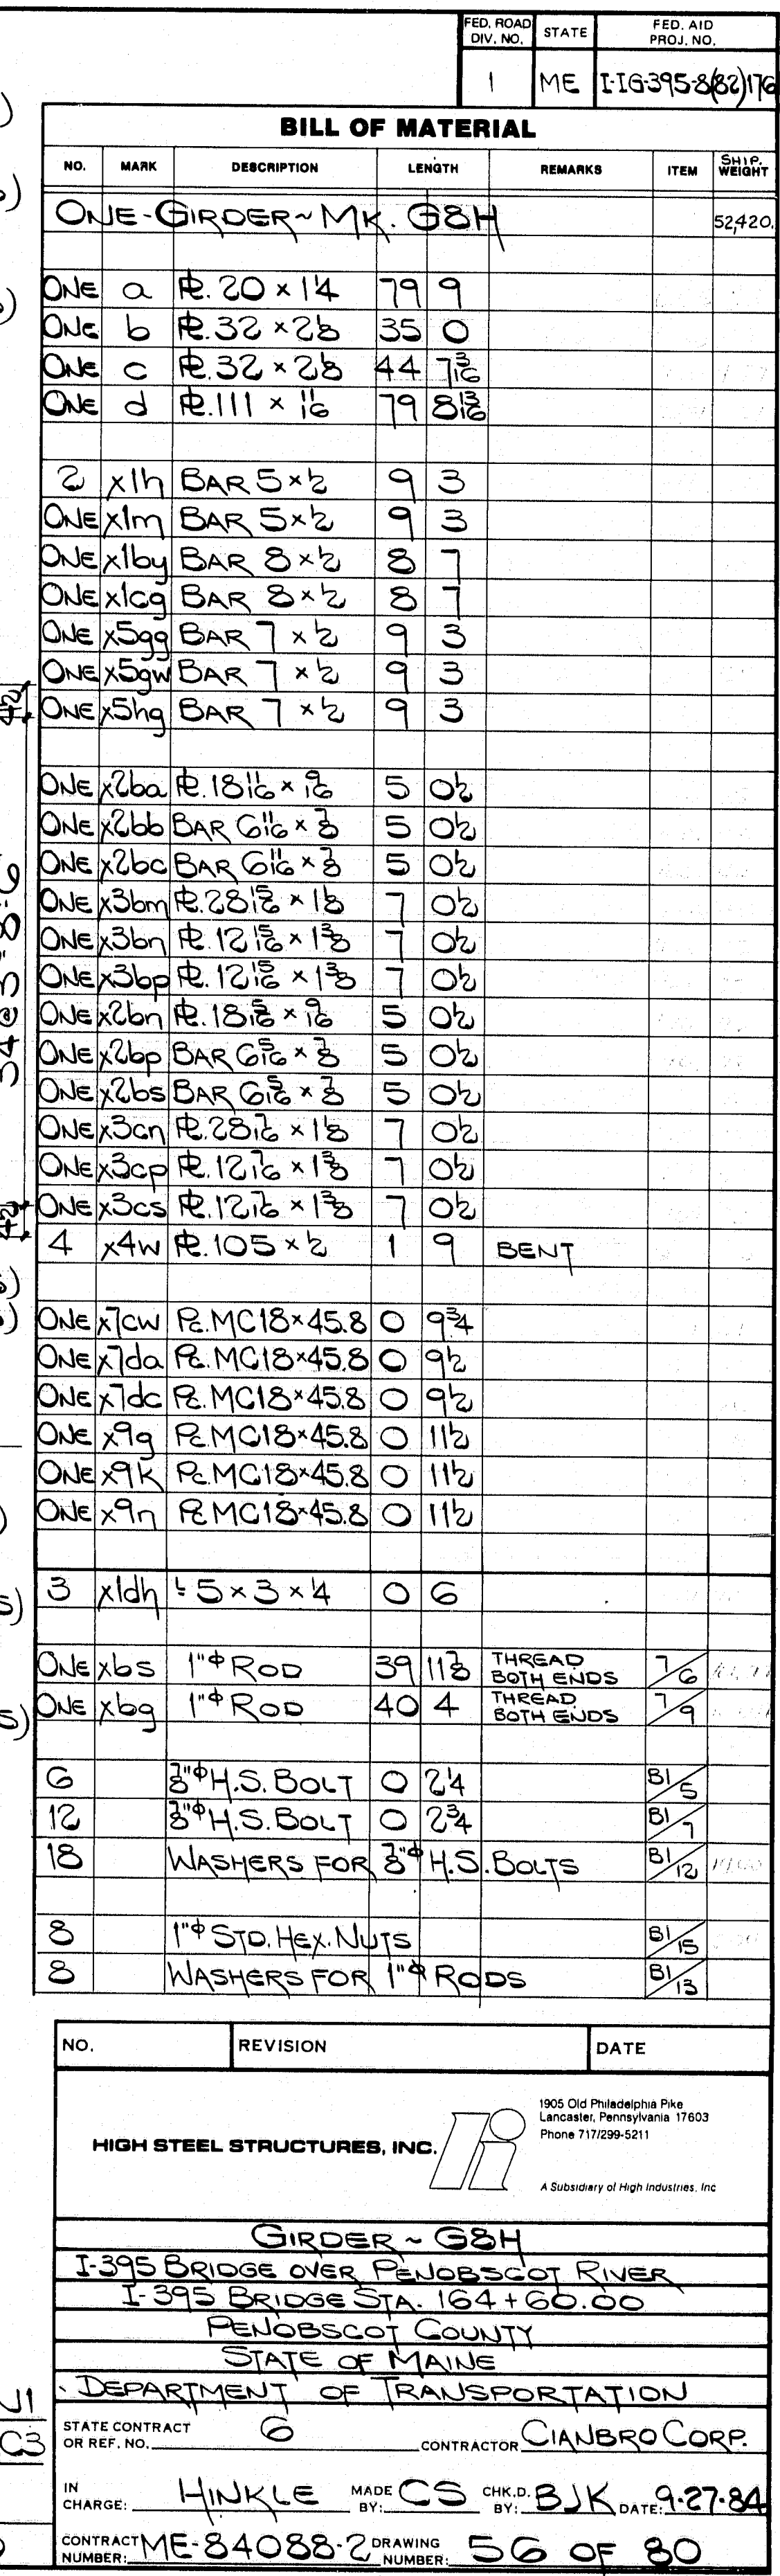 FED. ROAD DIV. NO. STATE FED. AID PROJ. NO.
1 ME I-IG-395-8(82)176
BILL OF MATERIAL
NO. MARK DESCRIPTION LENGTH REMARKS ITEM SHIP. WEIGHT
ONE-GIRDER~MK. G8H 52,420.
ONE a PL. 20 × 1 1/4 79 9
ONE b PL. 32 × 2 1/8 35 0
ONE c PL. 32 × 2 1/8 44 7 3/16
ONE d PL. 111 × 11/16 79 8 13/16
2 x1h BAR 5 × 1/2 9 3
ONE x1m BAR 5 × 1/2 9 3
ONE x1by BAR 8 × 1/2 8 7
ONE x1cg BAR 8 × 1/2 8 7
ONE x5gg BAR 7 × 1/2 9 3
ONE x5gw BAR 7 × 1/2 9 3
ONE x5hg BAR 7 × 1/2 9 3
ONE x2ba PL. 18 11/16 × 9/16 5 0 1/2
ONE x2bb BAR 6 11/16 × 7/8 5 0 1/2
ONE x2bc BAR 6 11/16 × 7/8 5 0 1/2
ONE x3bm PL. 28 15/16 × 1 1/8 7 0 1/2
ONE x3bn PL. 12 15/16 × 1 3/8 7 0 1/2
ONE x3bp PL. 12 15/16 × 1 3/8 7 0 1/2
ONE x2bn PL. 18 5/16 × 9/16 5 0 1/2
ONE x2bp BAR 6 5/16 × 7/8 5 0 1/2
ONE x2bs BAR 6 5/16 × 7/8 5 0 1/2
ONE x3cn PL. 28 7/16 × 1 1/8 7 0 1/2
ONE x3cp PL. 12 7/16 × 1 3/8 7 0 1/2
ONE x3cs PL. 12 7/16 × 1 3/8 7 0 1/2
4 x4w PL. 105 × 1/2 1 9 BENT
ONE x7cw PC. MC18×45.8 0 9 3/4
ONE x7da PC. MC18×45.8 0 9 1/2
ONE x7dc PC. MC18×45.8 0 9 1/2
ONE x9g PC. MC18×45.8 0 11 1/2
ONE x9k PC. MC18×45.8 0 11 1/2
ONE x9n PC MC18×45.8 0 11 1/2
3 x1dh L 5 × 3 × 1/4 0 6
ONE xbs 1"Φ ROD 39 11 7/8 THREAD BOTH ENDS 7/6
ONE xbg 1"Φ ROD 40 4 THREAD BOTH ENDS 7/9
6 7/8"Φ H.S. BOLT 0 2 1/4 B1/5
12 7/8"Φ H.S. BOLT 0 2 3/4 B1/7
18 WASHERS FOR 7/8"Φ H.S. BOLTS B1/12
8 1"Φ STD. HEX. NUTS B1/15
8 WASHERS FOR 1"Φ RODS B1/13
NO. REVISION DATE
HIGH STEEL STRUCTURES, INC.
1905 Old Philadelphia Pike
Lancaster, Pennsylvania 17603
Phone 717/299-5211
A Subsidiary of High Industries, Inc
GIRDER ~ G8H
I-395 BRIDGE OVER PENOBSCOT RIVER
I-395 BRIDGE STA. 164+60.00
PENOBSCOT COUNTY
STATE OF MAINE
DEPARTMENT OF TRANSPORTATION
STATE CONTRACT OR REF. NO. 6 CONTRACTOR CIANBRO CORP.
IN CHARGE: HINKLE MADE BY: CS CHK.D. BY: BJK DATE: 9-27-84
CONTRACT NUMBER: ME-84088-2 DRAWING NUMBER: 56 OF 80